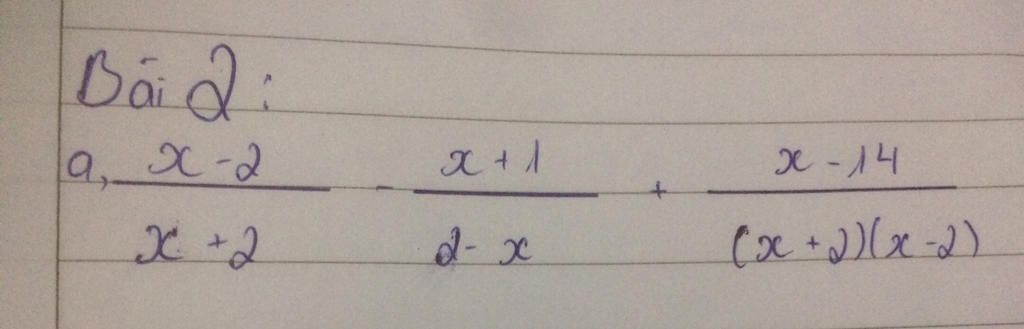 Bài 2:
a, \frac{x-2}{x+2} - \frac{x+1}{2-x} + \frac{x-14}{(x+2)(x-2)}